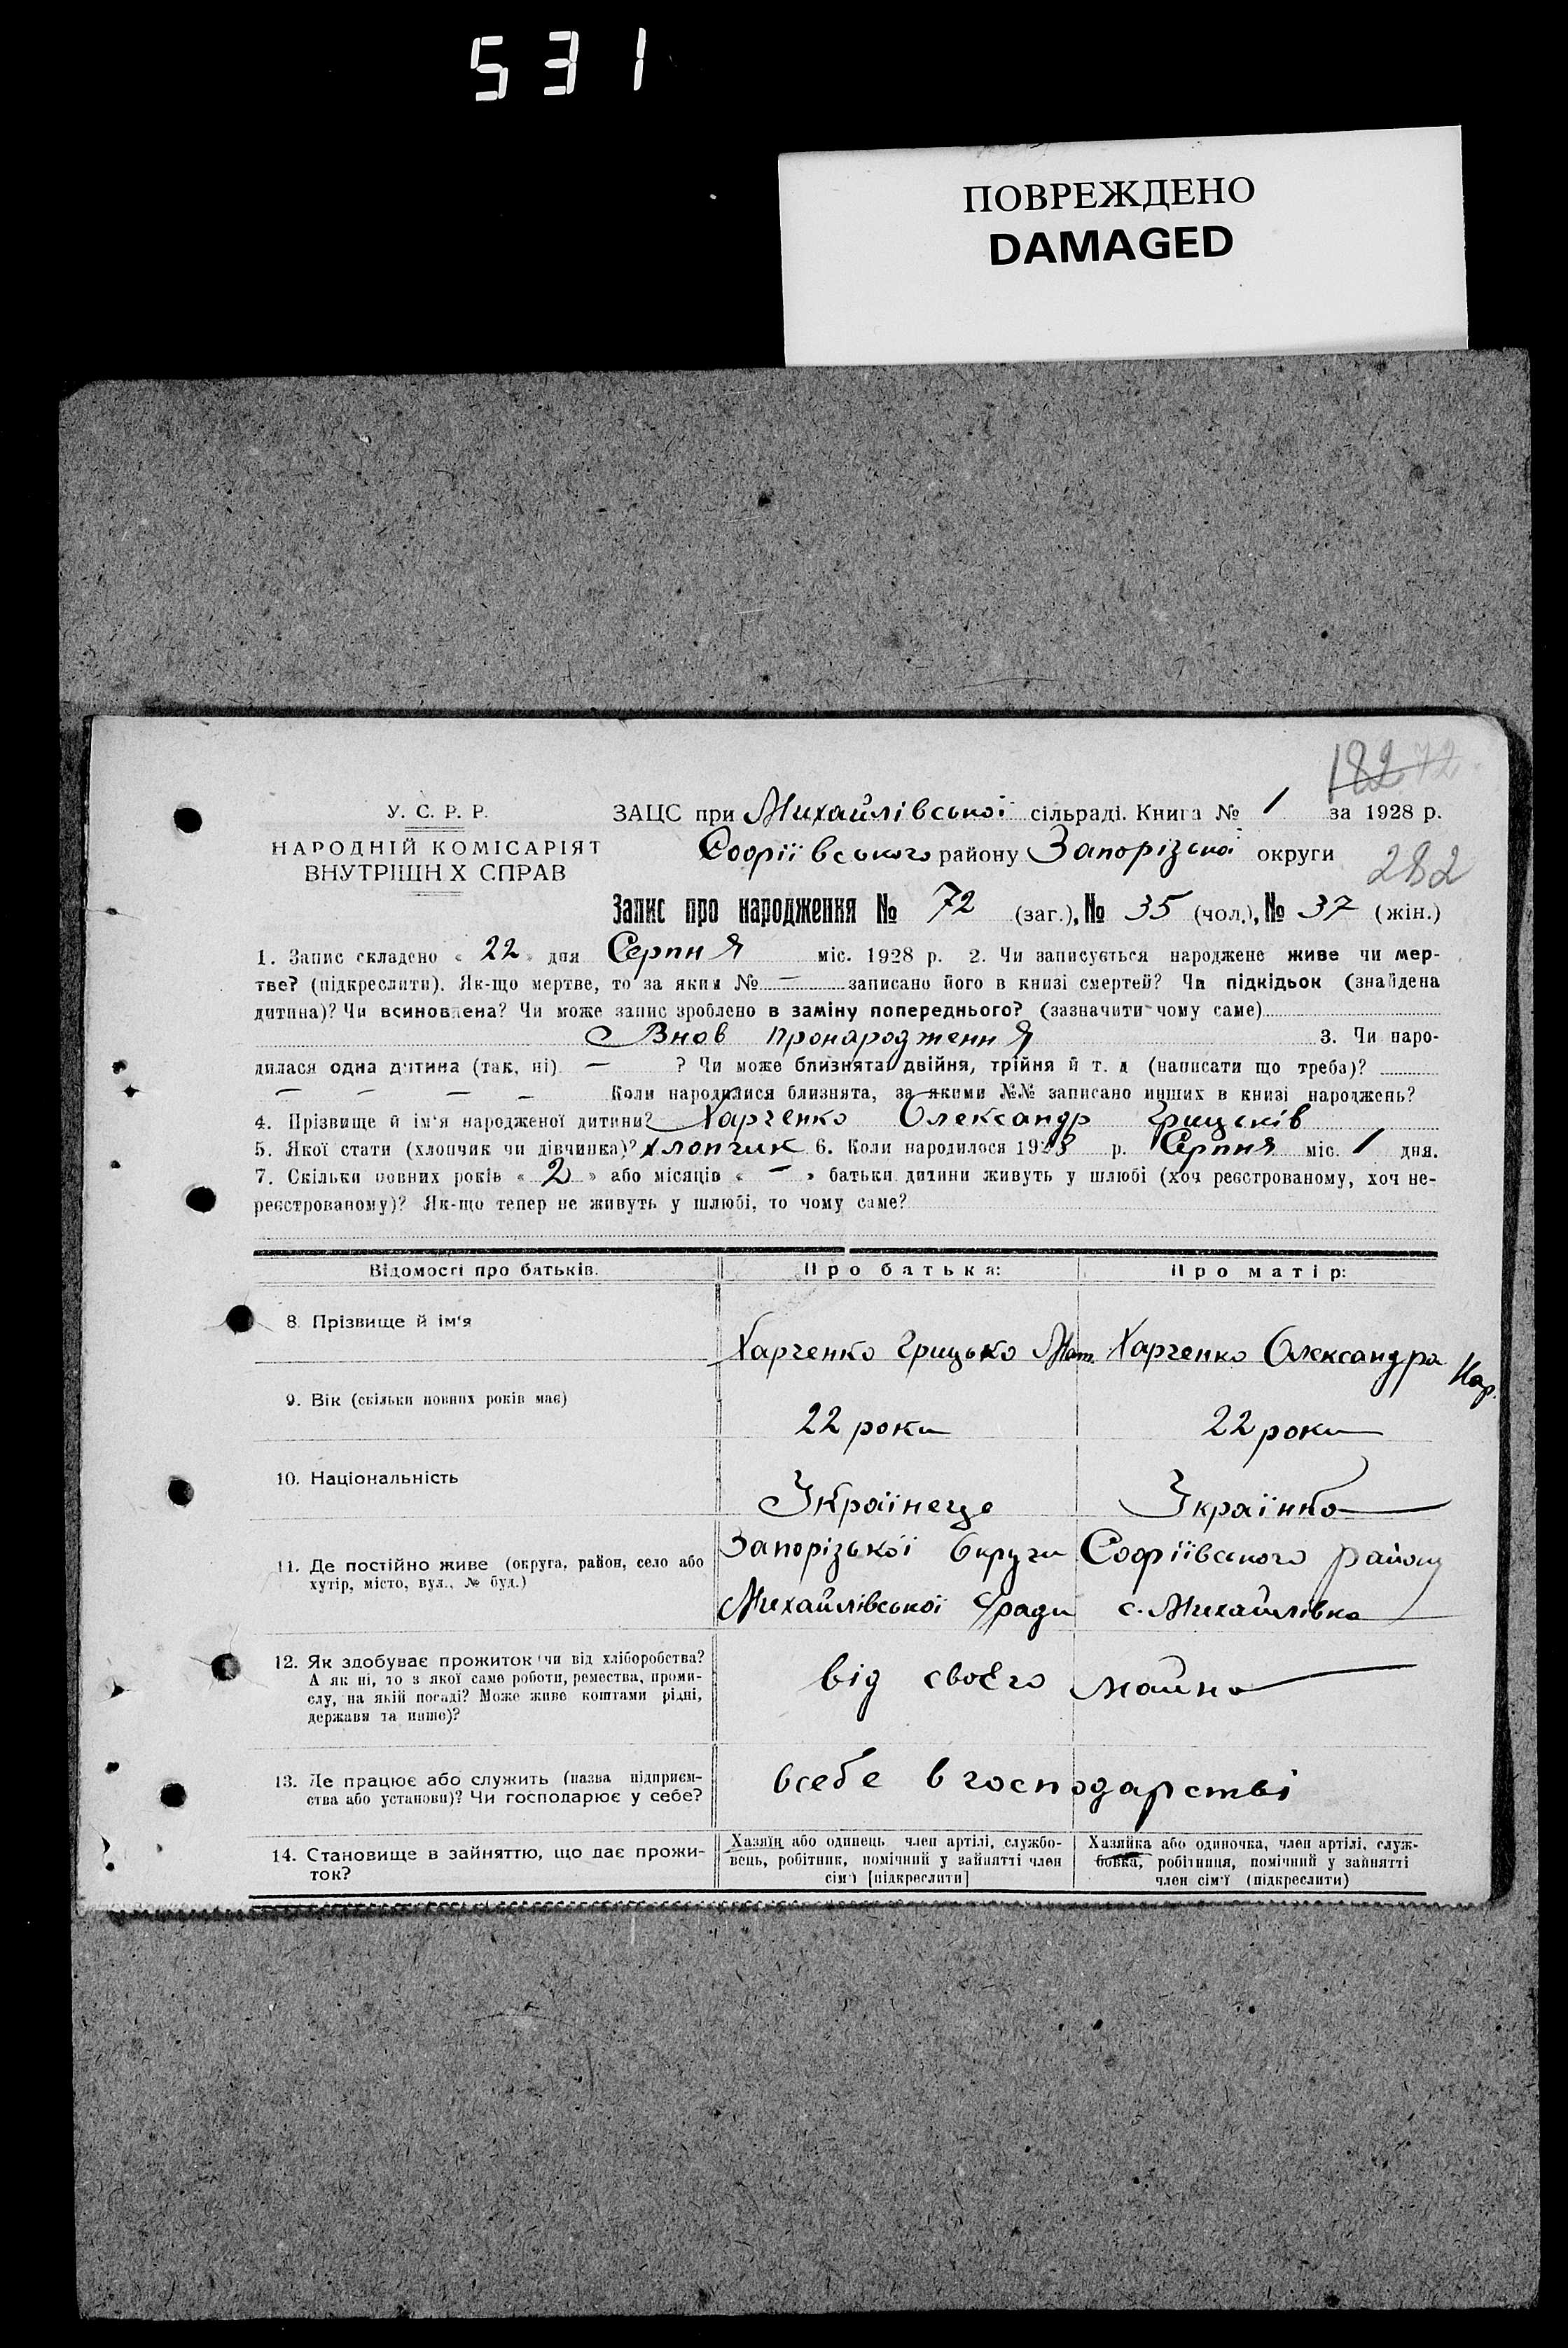 531
ПОВРЕЖДЕНО
DAMAGED
182 72
У. С. Р. Р.
ЗАЦС при Михайлівської сільраді. Книга № 1 за 1928 р.
НАРОДНІЙ КОМІСАРІЯТ
Софіївського району Запорізької округи
282
ВНУТРІШН Х СПРАВ
Запис про народження № 72 (заг.), № 35 (чол.), № 37 (жін.)
1. Запис складено « 22 » дня Серпня міс. 1928 р. 2. Чи записується народжене живе чи мер-
тве? (підкреслити). Як-що мертве, то за яким № — записано його в книзі смертей? Чи підкідьок (знайдена
дитина)? Чи всиновлена? Чи може запис зроблено в заміну попереднього? (зазначити чому саме)
Внов пронародження 3. Чи наро-
дилася одна дитина (так, ні) — ? Чи може близнята двійня, трійня й т. д (написати що треба)?
— — — — Коли народилися близнята, за якими №№ записано инших в книзі народжень?
4. Прізвище й ім'я народженої дитини? Харченко Олександр Грицьків
5. Якої стати (хлопчик чи дівчинка)? хлопчик 6. Коли народилося 1928 р. Серпня міс. 1 дня.
7. Скільки повних років « 2 » або місяців « — » батьки дитини живуть у шлюбі (хоч реєстрованому, хоч не-
реєстрованому)? Як-що тепер не живуть у шлюбі, то чому саме?
Відомості про батьків. Про батька: Про матір:
8. Прізвище й ім'я
Харченко Грицько Мат. Харченко Олександра Кар.
9. Вік (скільки повних років має)
22 роки 22 роки
10. Національність
Українеце Українка
11. Де постійно живе (округа, район, село або
хутір, місто, вул., № буд.)
Запорізької Округи Софіївського району
Михайлівської с/ради с. Михайлівка
12. Як здобуває прожиток чи від хліборобства?
А як ні, то з якої саме роботи, ремества, проми-
слу, на якій посаді? Може живе коштами рідні,
держави та инше)?
від своєго майна
13. Де працює або служить (назва підприєм-
ства або установи)? Чи господарює у себе?
всебе в господарстві
14. Становище в зайняттю, що дає прожи-
ток?
Хазяїн або одинець член артілі, службо-
вець, робітник, помічний у зайнятті член
сім'ї [підкреслити]
Хазяйка або одиночка, член артілі, служ-
бовка, робітниця, помічний у зайнятті
член сім'ї (підкреслити)